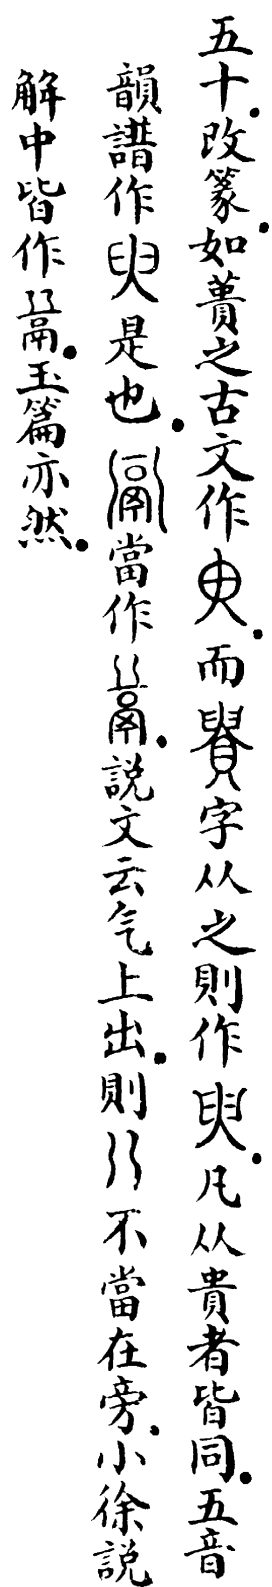 五十。改篆。如蕢之古文作。而䝿字从之則作臾。凡从貴者皆同。五音
韻譜作臾是也。䰜當作。說文云气上出。則不當在旁。小徐說
解中皆作。玉篇亦然。